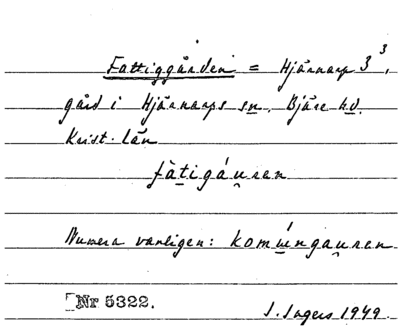 Fattiggården = Hjärnarp 3³,
gård i Hjärnarps sn. Bjäre hd.
Krist. län
fàtigáu̯ren
Numera vanligen: komɯ́ngau̯ren
Nr 5322.
I. Ingers 1949.